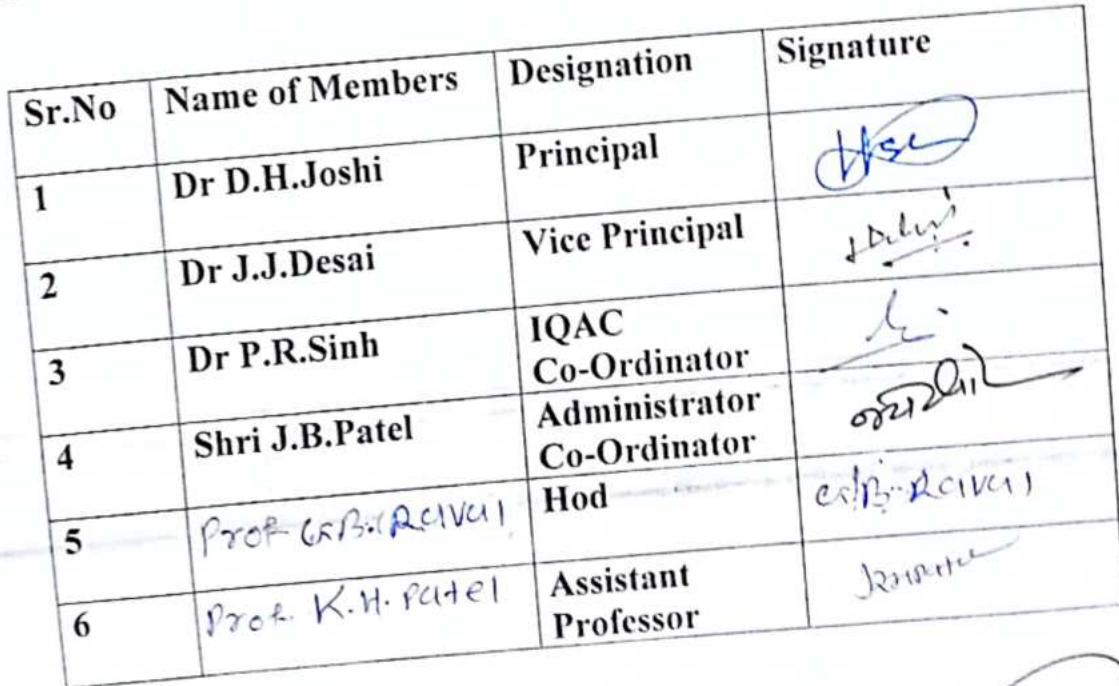 Sr.No Name of Members Designation Signature
1 Dr D.H.Joshi Principal
2 Dr J.J.Desai Vice Principal
3 Dr P.R.Sinh IQAC
Co-Ordinator
4 Shri J.B.Patel Administrator
Co-Ordinator
5 Prof Raval Hod Raval
6 Prof. K.H. Patel Assistant
Professor